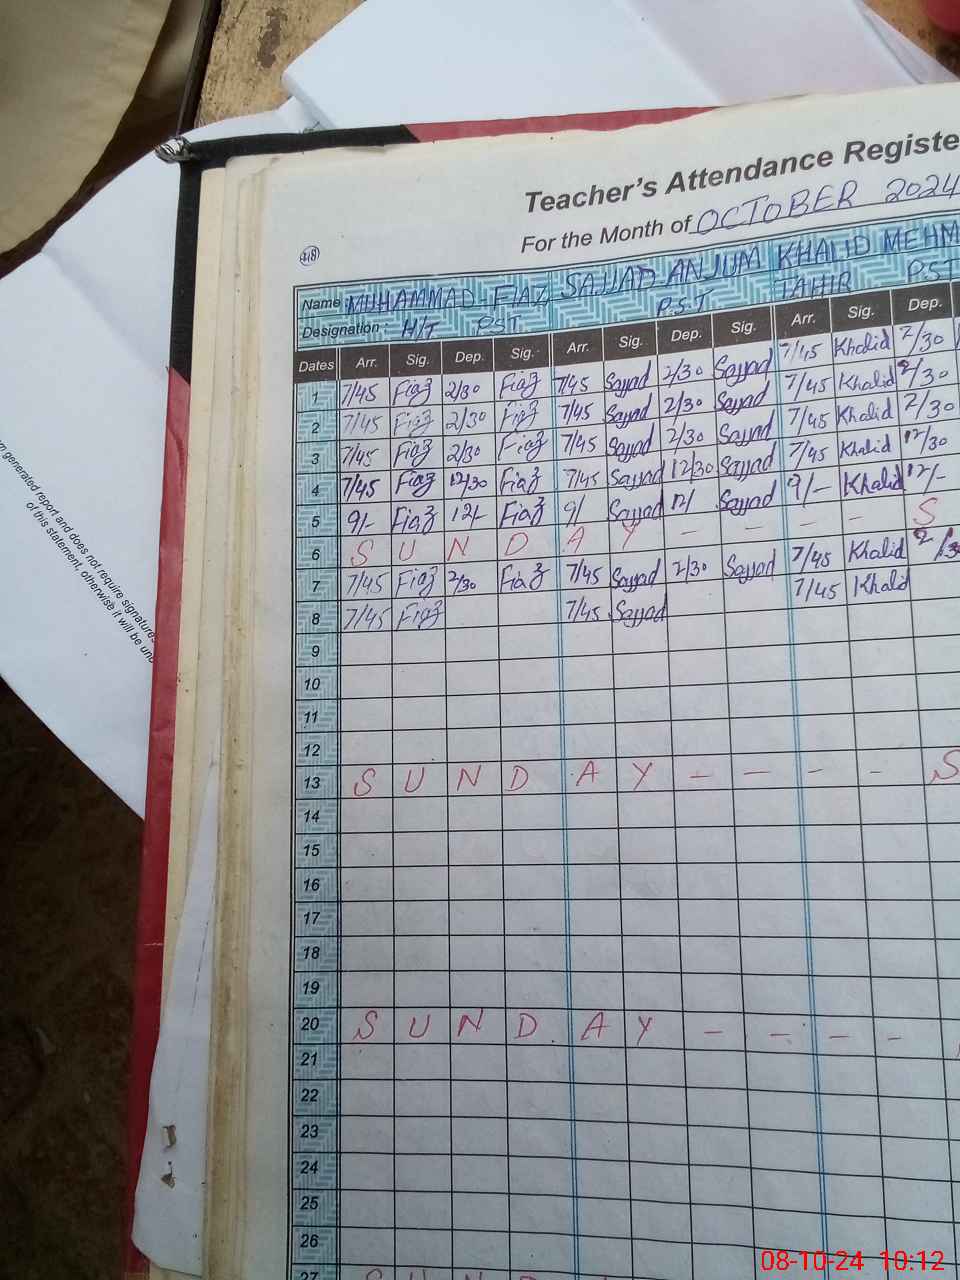 Teacher's Attendance Registe
For the Month of OCTOBER 2024
418
Name MUHAMMAD-FIAZ SAJJAD ANJUM KHALID MEHM
TAHIR
Designation: H/T PST P.S.T PST
Dates Arr. Sig. Dep. Sig. Arr. Sig. Dep. Sig. Arr. Sig. Dep.
1 7/45 Fiaz 2/30 Fiaz 7/45 Sajjad 2/30 Sajjad 7/45 Khalid 2/30
2 7/45 Fiaz 2/30 Fiaz 7/45 Sajjad 2/30 Sajjad 7/45 Khalid 2/30
3 7/45 Fiaz 2/30 Fiaz 7/45 Sajjad 2/30 Sajjad 7/45 Khalid 2/30
4 7/45 Fiaz 12/30 Fiaz 7/45 Sajjad 12/30 Sajjad 7/45 Khalid 12/30
5 9/- Fiaz 12/- Fiaz 9/ Sajjad 12/ Sajjad 9/- Khalid 12/-
6 S U N D A Y - - - - S
7 7/45 Fiaz 2/30 Fiaz 7/45 Sajjad 2/30 Sajjad 7/45 Khalid 2/30
8 7/45 Fiaz 7/45 Sajjad 7/45 Khalid
9
10
11
12
13 S U N D A Y - - - - S
14
15
16
17
18
19
20 S U N D A Y - - - -
21
22
23
24
25
26
27 S U N D A Y
generated report and does not require signatures
of this statement, otherwise it will be
08-10-24 10:12